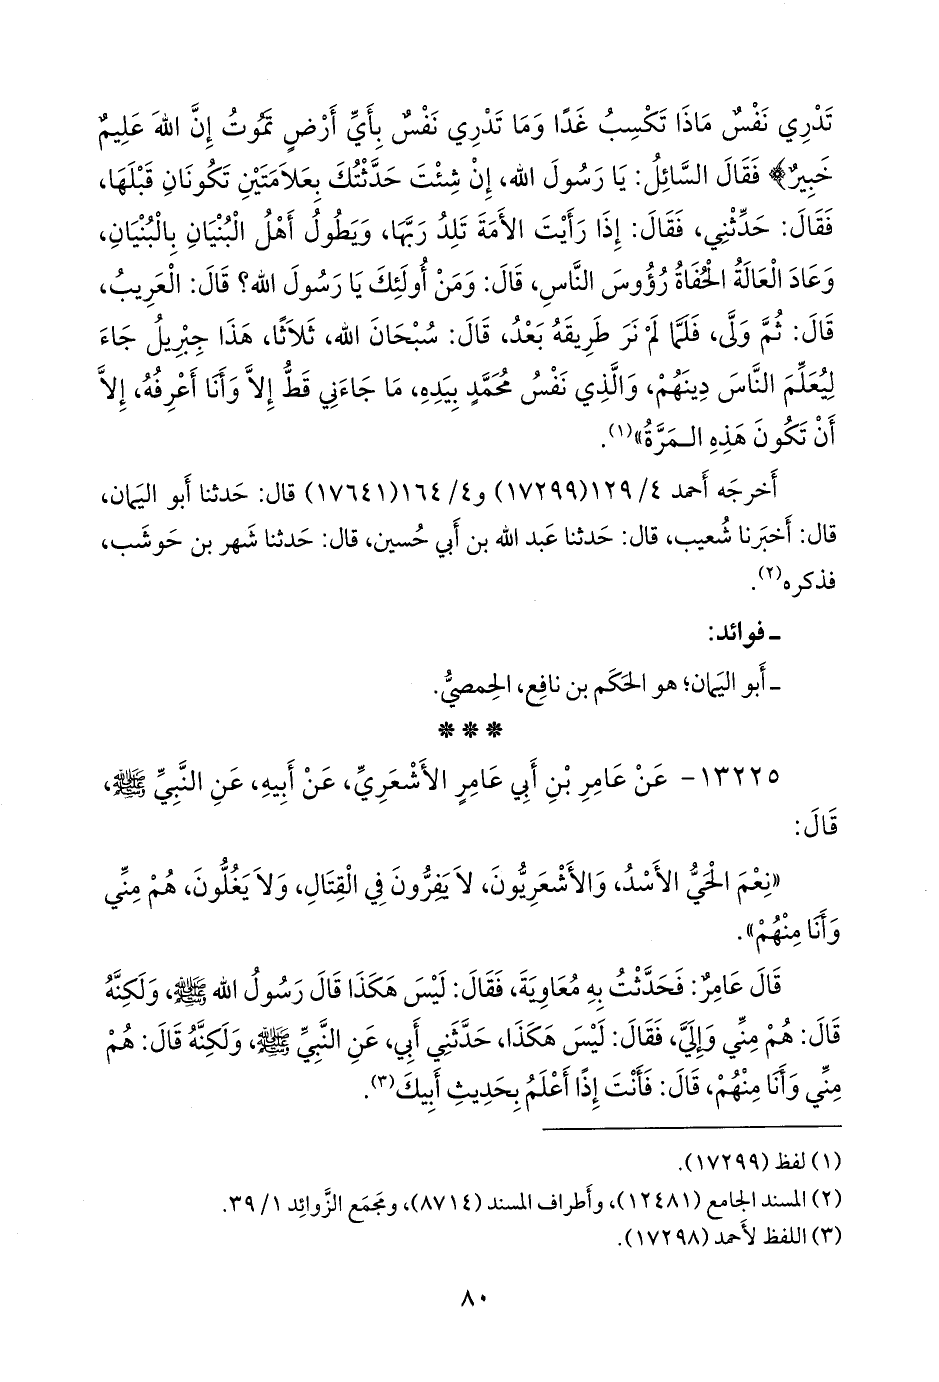 تَدْرِي نَفْسٌ مَاذَا تَكْسِبُ غَدًا وَمَا تَدْرِي نَفْسٌ بِأَيِّ أَرْضٍ تَمُوتُ إِنَّ اللهَ عَلِيمٌ
خَبِيرٌ﴾ فَقَالَ السَّائِلُ: يَا رَسُولَ الله، إِنْ شِئْتَ حَدَّثْتُكَ بِعَلاَمَتَيْنِ تَكُونَانِ قَبْلَهَا،
فَقَالَ: حَدِّثْنِي، فَقَالَ: إِذَا رَأَيْتَ الأَمَةَ تَلِدُ رَبَّهَا، وَيَطُولُ أَهْلُ الْبُنْيَانِ بِالْبُنْيَانِ،
وَعَادَ الْعَالَةُ الْحُفَاةُ رُؤُوسَ النَّاسِ، قَالَ: وَمَنْ أُولَئِكَ يَا رَسُولَ الله؟ قَالَ: الْعَرِيبُ،
قَالَ: ثُمَّ وَلَّى، فَلَمَّا لَمْ نَرَ طَرِيقَهُ بَعْدُ، قَالَ: سُبْحَانَ الله، ثَلاَثًا، هَذَا جِبْرِيلُ جَاءَ
لِيُعَلِّمَ النَّاسَ دِينَهُمْ، وَالَّذِي نَفْسُ مُحَمَّدٍ بِيَدِهِ، مَا جَاءَنِي قَطُّ إِلاَّ وَأَنَا أَعْرِفُهُ، إِلاَّ
أَنْ تَكُونَ هَذِهِ الـمَرَّةُ»(١).
أَخرجَه أَحمد ٤/ ١٢٩(١٧٢٩٩) و٤/ ١٦٤(١٧٦٤١) قال: حَدثنا أَبو اليَمان،
قال: أَخبَرنا شُعيب، قال: حَدثنا عَبد الله بن أَبي حُسين، قال: حَدثنا شَهر بن حَوشَب،
فذكره(٢).
ـ فوائد:
ـ أَبو اليَمان؛ هو الحَكَم بن نافِع، الحِمصيُّ.
* * *
١٣٢٢٥- عَنْ عَامِرِ بْنِ أَبِي عَامِرٍ الأَشْعَرِيِّ، عَنْ أَبِيهِ، عَنِ النَّبِيِّ ﷺ،
قَالَ:
«نِعْمَ الْحَيُّ الأَسْدُ، وَالأَشْعَرِيُّونَ، لاَ يَفِرُّونَ فِي الْقِتَالِ، وَلاَ يَغُلُّونَ، هُمْ مِنِّي
وَأَنَا مِنْهُمْ».
قَالَ عَامِرٌ: فَحَدَّثْتُ بِهِ مُعَاوِيَةَ، فَقَالَ: لَيْسَ هَكَذَا قَالَ رَسُولُ الله ﷺ، وَلَكِنَّهُ
قَالَ: هُمْ مِنِّي وَإِلَيَّ، فَقَالَ: لَيْسَ هَكَذَا، حَدَّثَنِي أَبِي، عَنِ النَّبِيِّ ﷺ، وَلَكِنَّهُ قَالَ: هُمْ
مِنِّي وَأَنَا مِنْهُمْ، قَالَ: فَأَنْتَ إِذًا أَعْلَمُ بِحَدِيثِ أَبِيكَ(٣).
(١) لفظ (١٧٢٩٩).
(٢) المسند الجامع (١٢٤٨١)، وأَطراف المسند (٨٧١٤)، ومَجمَع الزَّوائِد ١/ ٣٩.
(٣) اللفظ لأَحمد (١٧٢٩٨).
٨٠